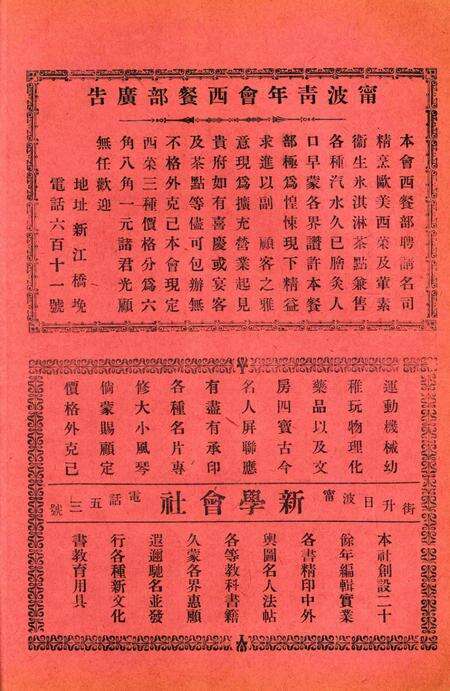 甯波靑年會西餐部廣告
本會西餐部聘請名司
精烹歐美西菜及葷素
衞生氷淇淋茶點兼售
各種汽水久已膾炙人
口早蒙各界讚許本餐
部極爲惶悚現下精益
求進以副　顧客之雅
意現爲擴充營業起見
貴府如有喜慶或宴客
及茶點等儘可包辦無
不格外克己本會現定
西菜三種價格分爲六
角八角一元諸君光顧
無任歡迎
地址新江橋堍
電話六百十一號
運動機械幼
稚玩物理化
藥品以及文
房四寶古今
名人屛聯應
有盡有承印
各種名片專
修大小風琴
倘蒙賜顧定
價格外克己
甯波日升街
新學會社
電話五三號
本社創設二十
餘年編輯實業
各書精印中外
輿圖名人法帖
各等敎科書籍
久蒙各界惠顧
遐邇馳名並發
行各種新文化
書敎育用具